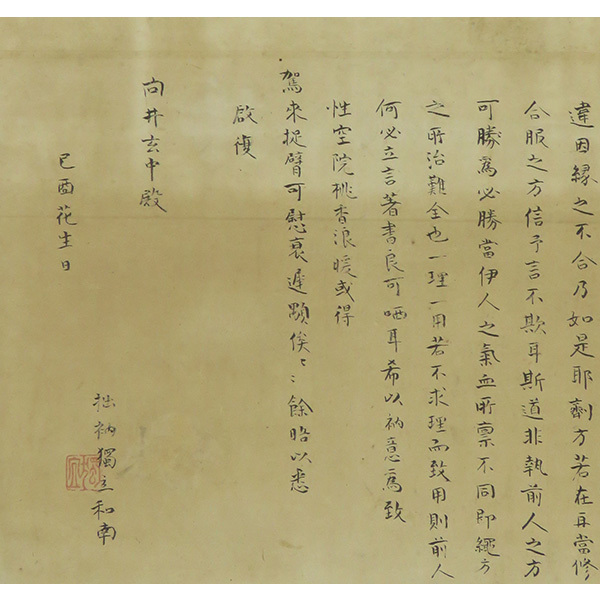 違因緣之不合乃如是耶劑方若在再當修
合服之方信予言不欺耳斯道非執前人之方
可勝爲必勝當伊人之氣血所禀不同即繩方
之所治難全也一理一用若不求理而致用則前人
何必立言著書良可哂耳希以衲意爲致
性空院桃香浪暖或得
駕來捉臂可慰衷遲顒俟〻餘晤以悉
啟復
向井玄中殿
己酉花生日
拙衲獨立和南